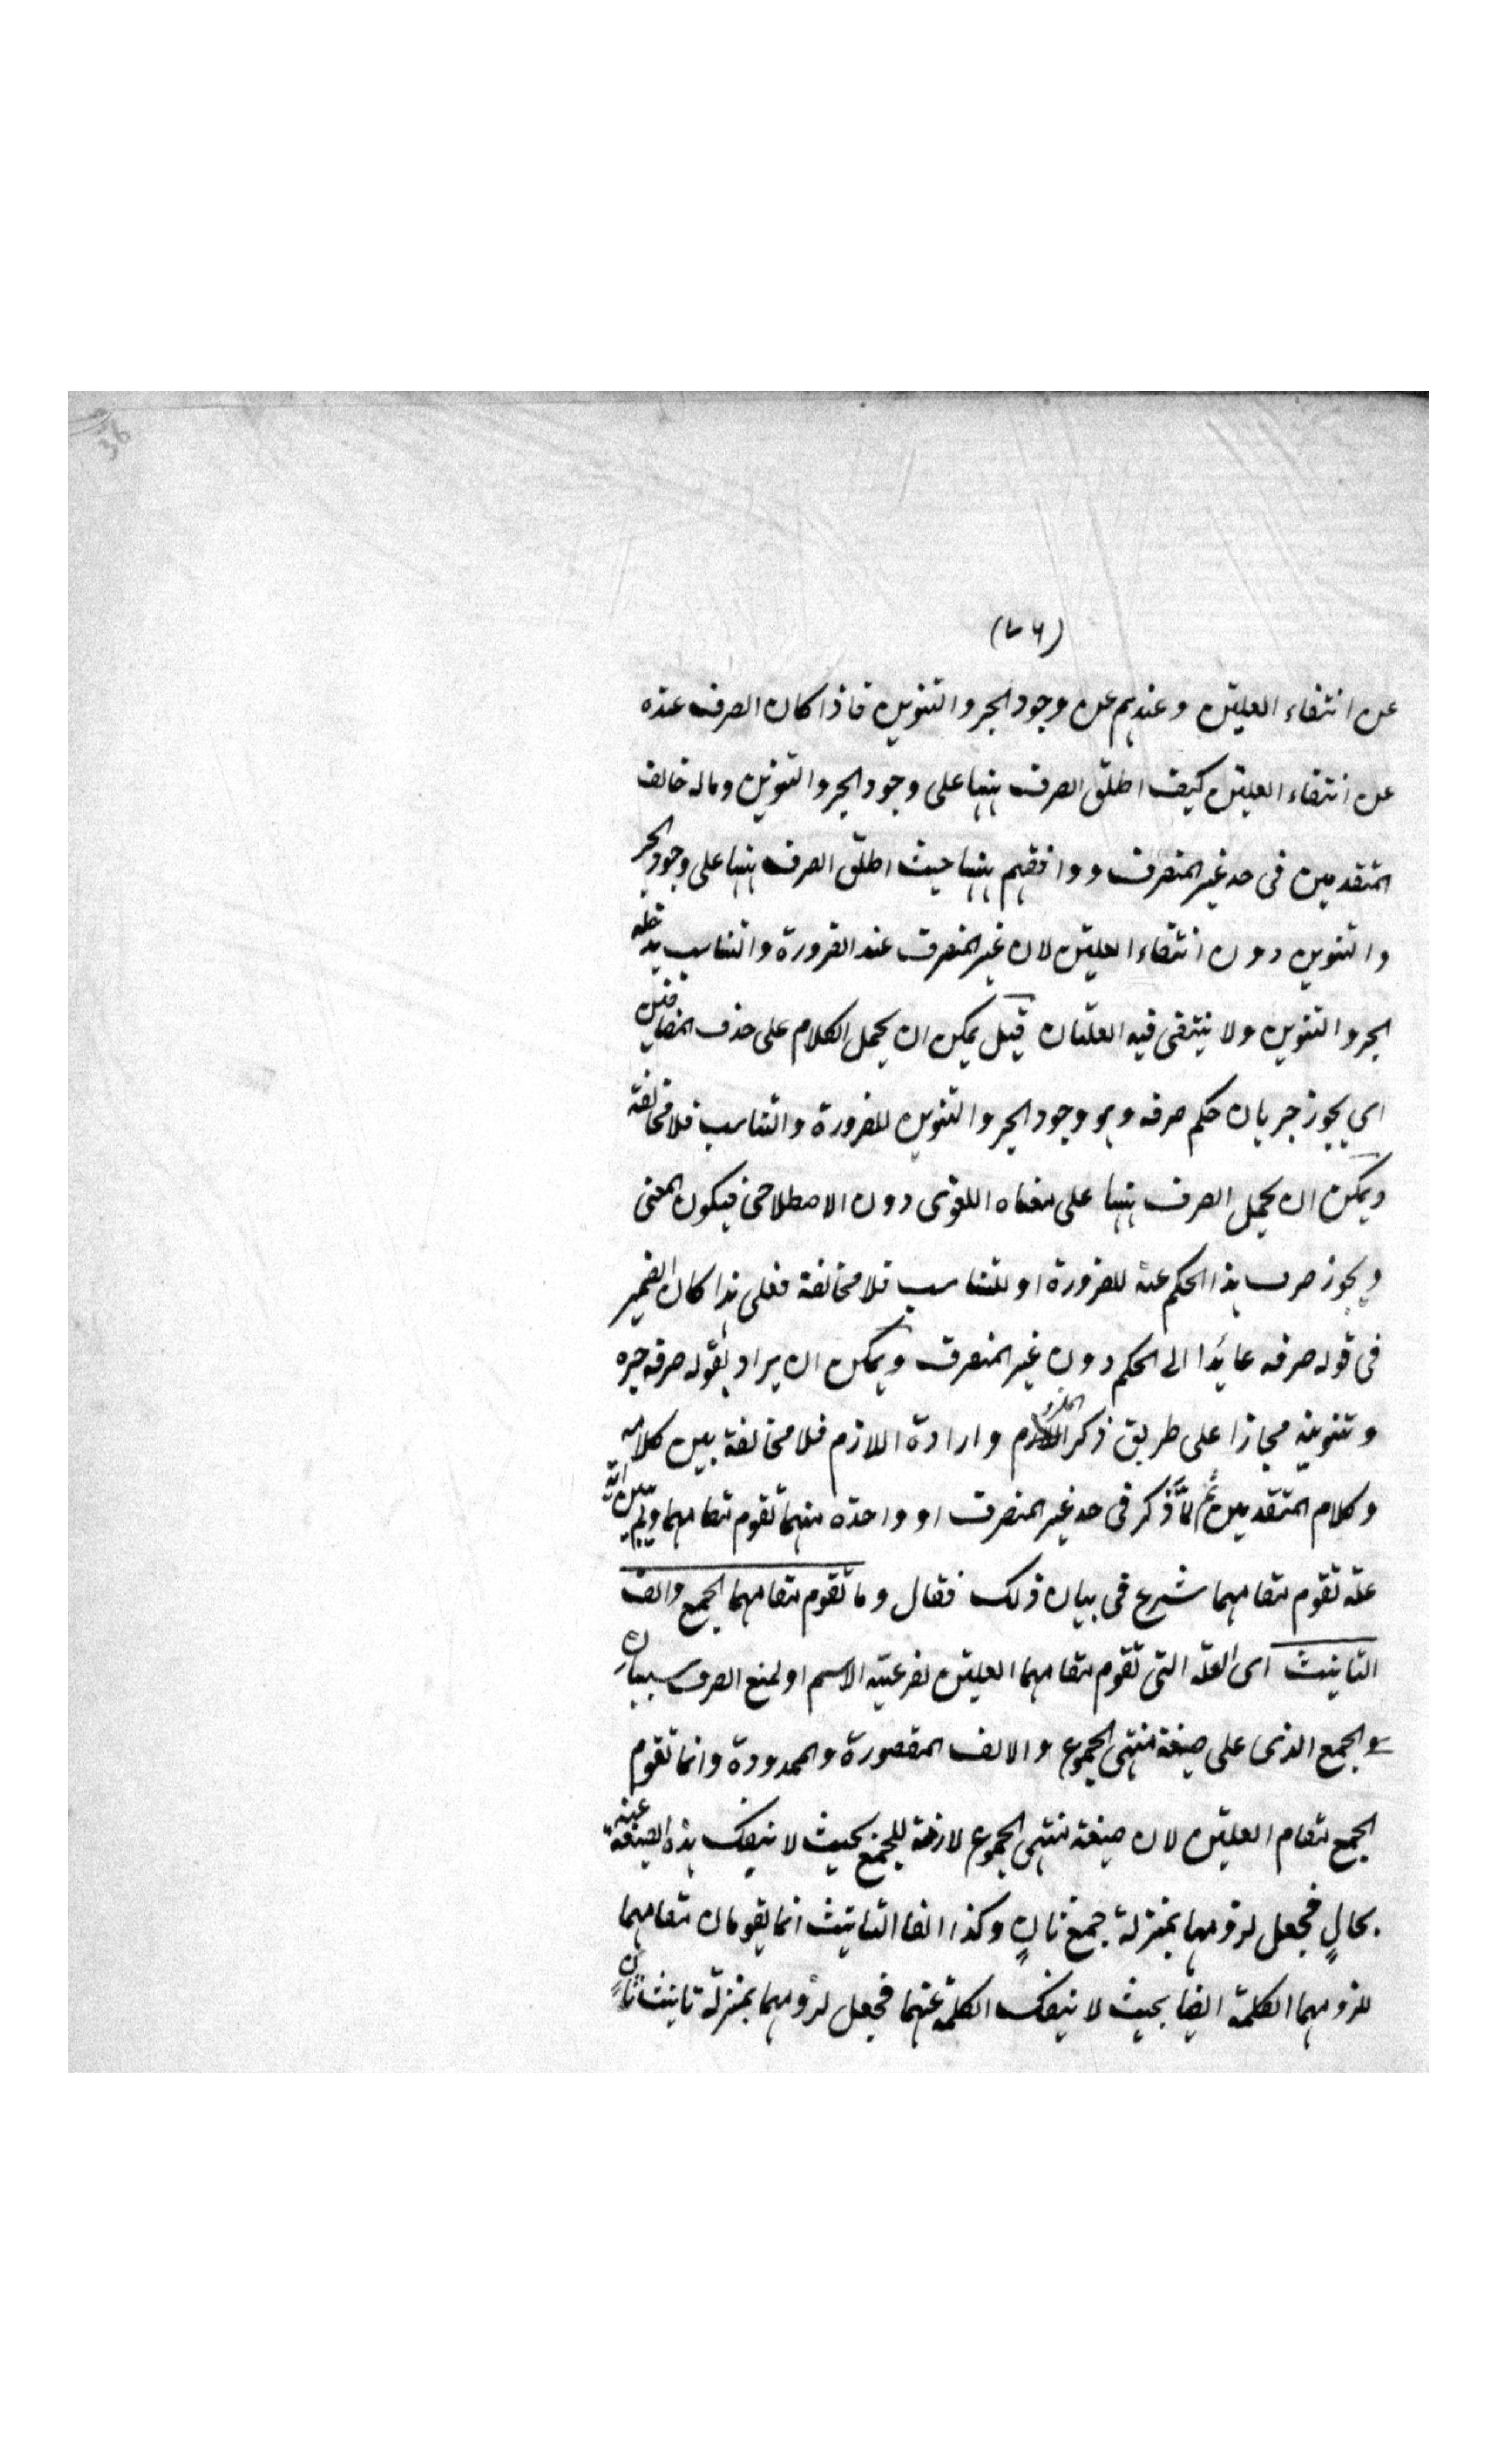 (٧٦)
عن انتفاء العلتين وعندهم عن وجود الجر والتنوين فاذا كان الصرف عنده
عن انتفاء العلتين كيف اطلق الصرف ههنا على وجود الجر والتنوين وماله خالف
المتقدمين فى حد غير المنصرف ووافقهم ههنا حيث اطلق الصرف ههنا على وجود الجر
والتنوين دون انتفاء العلتين لان غير المنصرف عند الضرورة والتناسب يدخله
الجر والتنوين ولا ينتفى فيه العلتان قيل يمكن ان يحمل الكلام على حذف المضافين
اى يجوز جريان حكم صرفه وهو وجود الجر والتنوين للضرورة والتناسب فلا مخالفة
ويمكن ان يحمل الصرف ههنا على معناه اللغوى دون الاصطلاحى فيكون المعنى
ويجوز صرف هذا الحكم عنه للضرورة او للتناسب فلا مخالفة فعلى هذا كان الضمير
فى قوله صرفه عايدا الى الحكم دون غير المنصرف ويمكن ان يراد بقوله صرفه جره
وتنوينه مجازا على طريق ذكر الملزوم وارادة اللازم فلا مخالفة بين كلامه
وكلام المتقدمين ثم لمّا ذكر فى حد غير المنصرف او واحدة منهما تقوم مقامهما ولم يبين اية
علة تقوم مقامهما شرع فى بيان ذلك فقال وما تقوم مقامهما الجمع والفا
التانيث اى العلة التى تقوم مقامهما العلتين لفرعية الاسم او لمنع الصرف سببان
والجمع الذى على صيغة منتهى الجموع والالف المقصورة والممدودة وانما تقوم
الجمع مقام العلتين لان صيغة منتهى الجموع لازمة للجمع بحيث لا ينفك هذه الصيغة عنه
بحالٍ فجعل لزومها بمنزلة جمع ثانٍ وكذا الفا التانيث انما يقومان مقامهما
للزومهما الكلمة ايضا بحيث لا ينفك الكلمة عنهما فجعل لزومهما بمنزلة تانيث ثانٍ
36